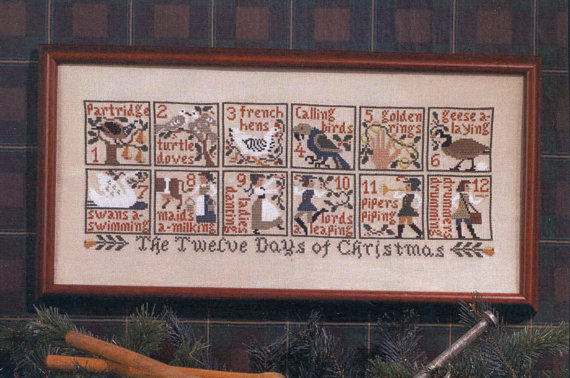 Partridge
1
2
turtle
doves
3 french
hens
Calling
birds
4
5 golden
rings
geese a-
laying
6
7
swans a-
swimming
8
maids
a-milking
9
ladies
dancing
10
lords
a leaping
11
pipers
piping
12
drummers
drumming
The Twelve Days of Christmas